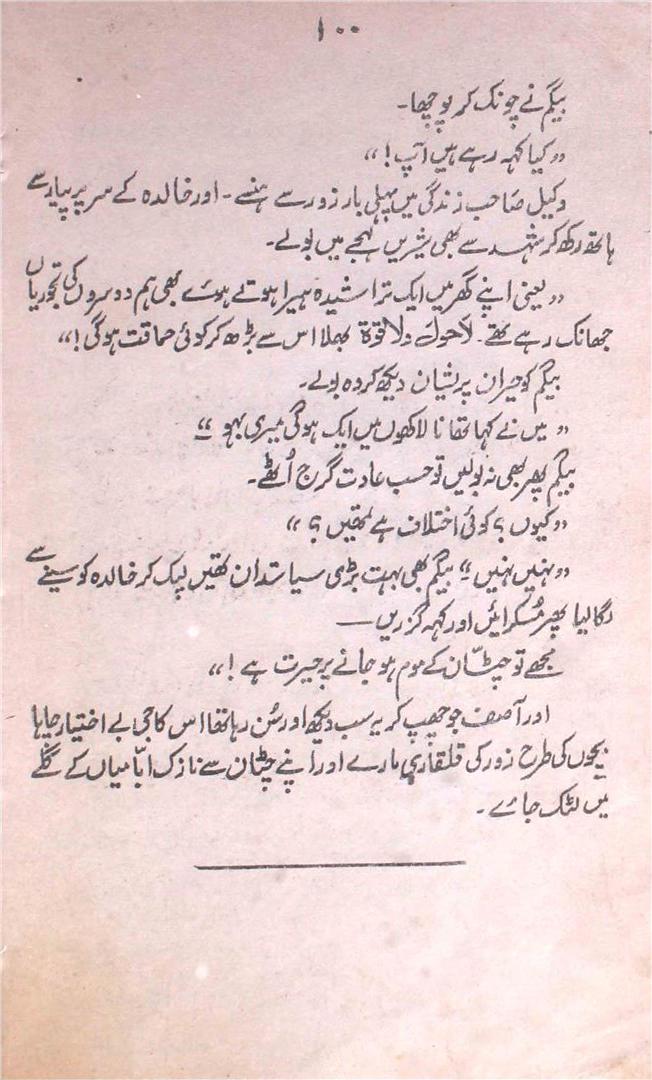 ۱۰۰
بیگم نے چونک کر پوچھا۔
”کیا کہہ رہے ہیں آپ!“
وکیل صاحب زندگی میں پہلی بار زور سے ہنسے۔ اور خالدہ کے سر پر پیار سے
ہاتھ رکھ کر شہد سے بھی شیریں لہجے میں بولے۔
”یعنی اپنے گھر میں ایک تراشیدہ ہیرا ہوتے ہوئے بھی ہم دوسروں کی تجوریاں
جھانک رہے تھے۔ لاحول ولاقوۃ بھلا اس سے بڑھ کر کوئی حماقت ہوگی!“
بیگم کو حیران پریشان دیکھ کر وہ بولے۔
”میں نے کہا تھا نا لاکھوں میں ایک ہوگی میری بہو۔“
بیگم پھر بھی نہ بولیں تو حسب عادت گرج اُٹھے۔
”کیوں؟ کوئی اختلاف ہے تمھیں؟“
”نہیں نہیں“ بیگم بھی بہت بڑی سیاستدان تھیں لپک کر خالدہ کو سینے سے
لگا لیا پھر مُسکرائیں اور کہہ گزریں —
مجھے تو چٹّان کے موم ہو جانے پر حیرت ہے!“
اور آصف جو چھپ کر یہ سب دیکھ اور سُن رہا تھا اس کا جی بے اختیار چاہا
بچوں کی طرح زور کی قلقاری مارے اور اپنے چٹان سے نازک ابّا میاں کے گلے
میں لٹک جائے۔